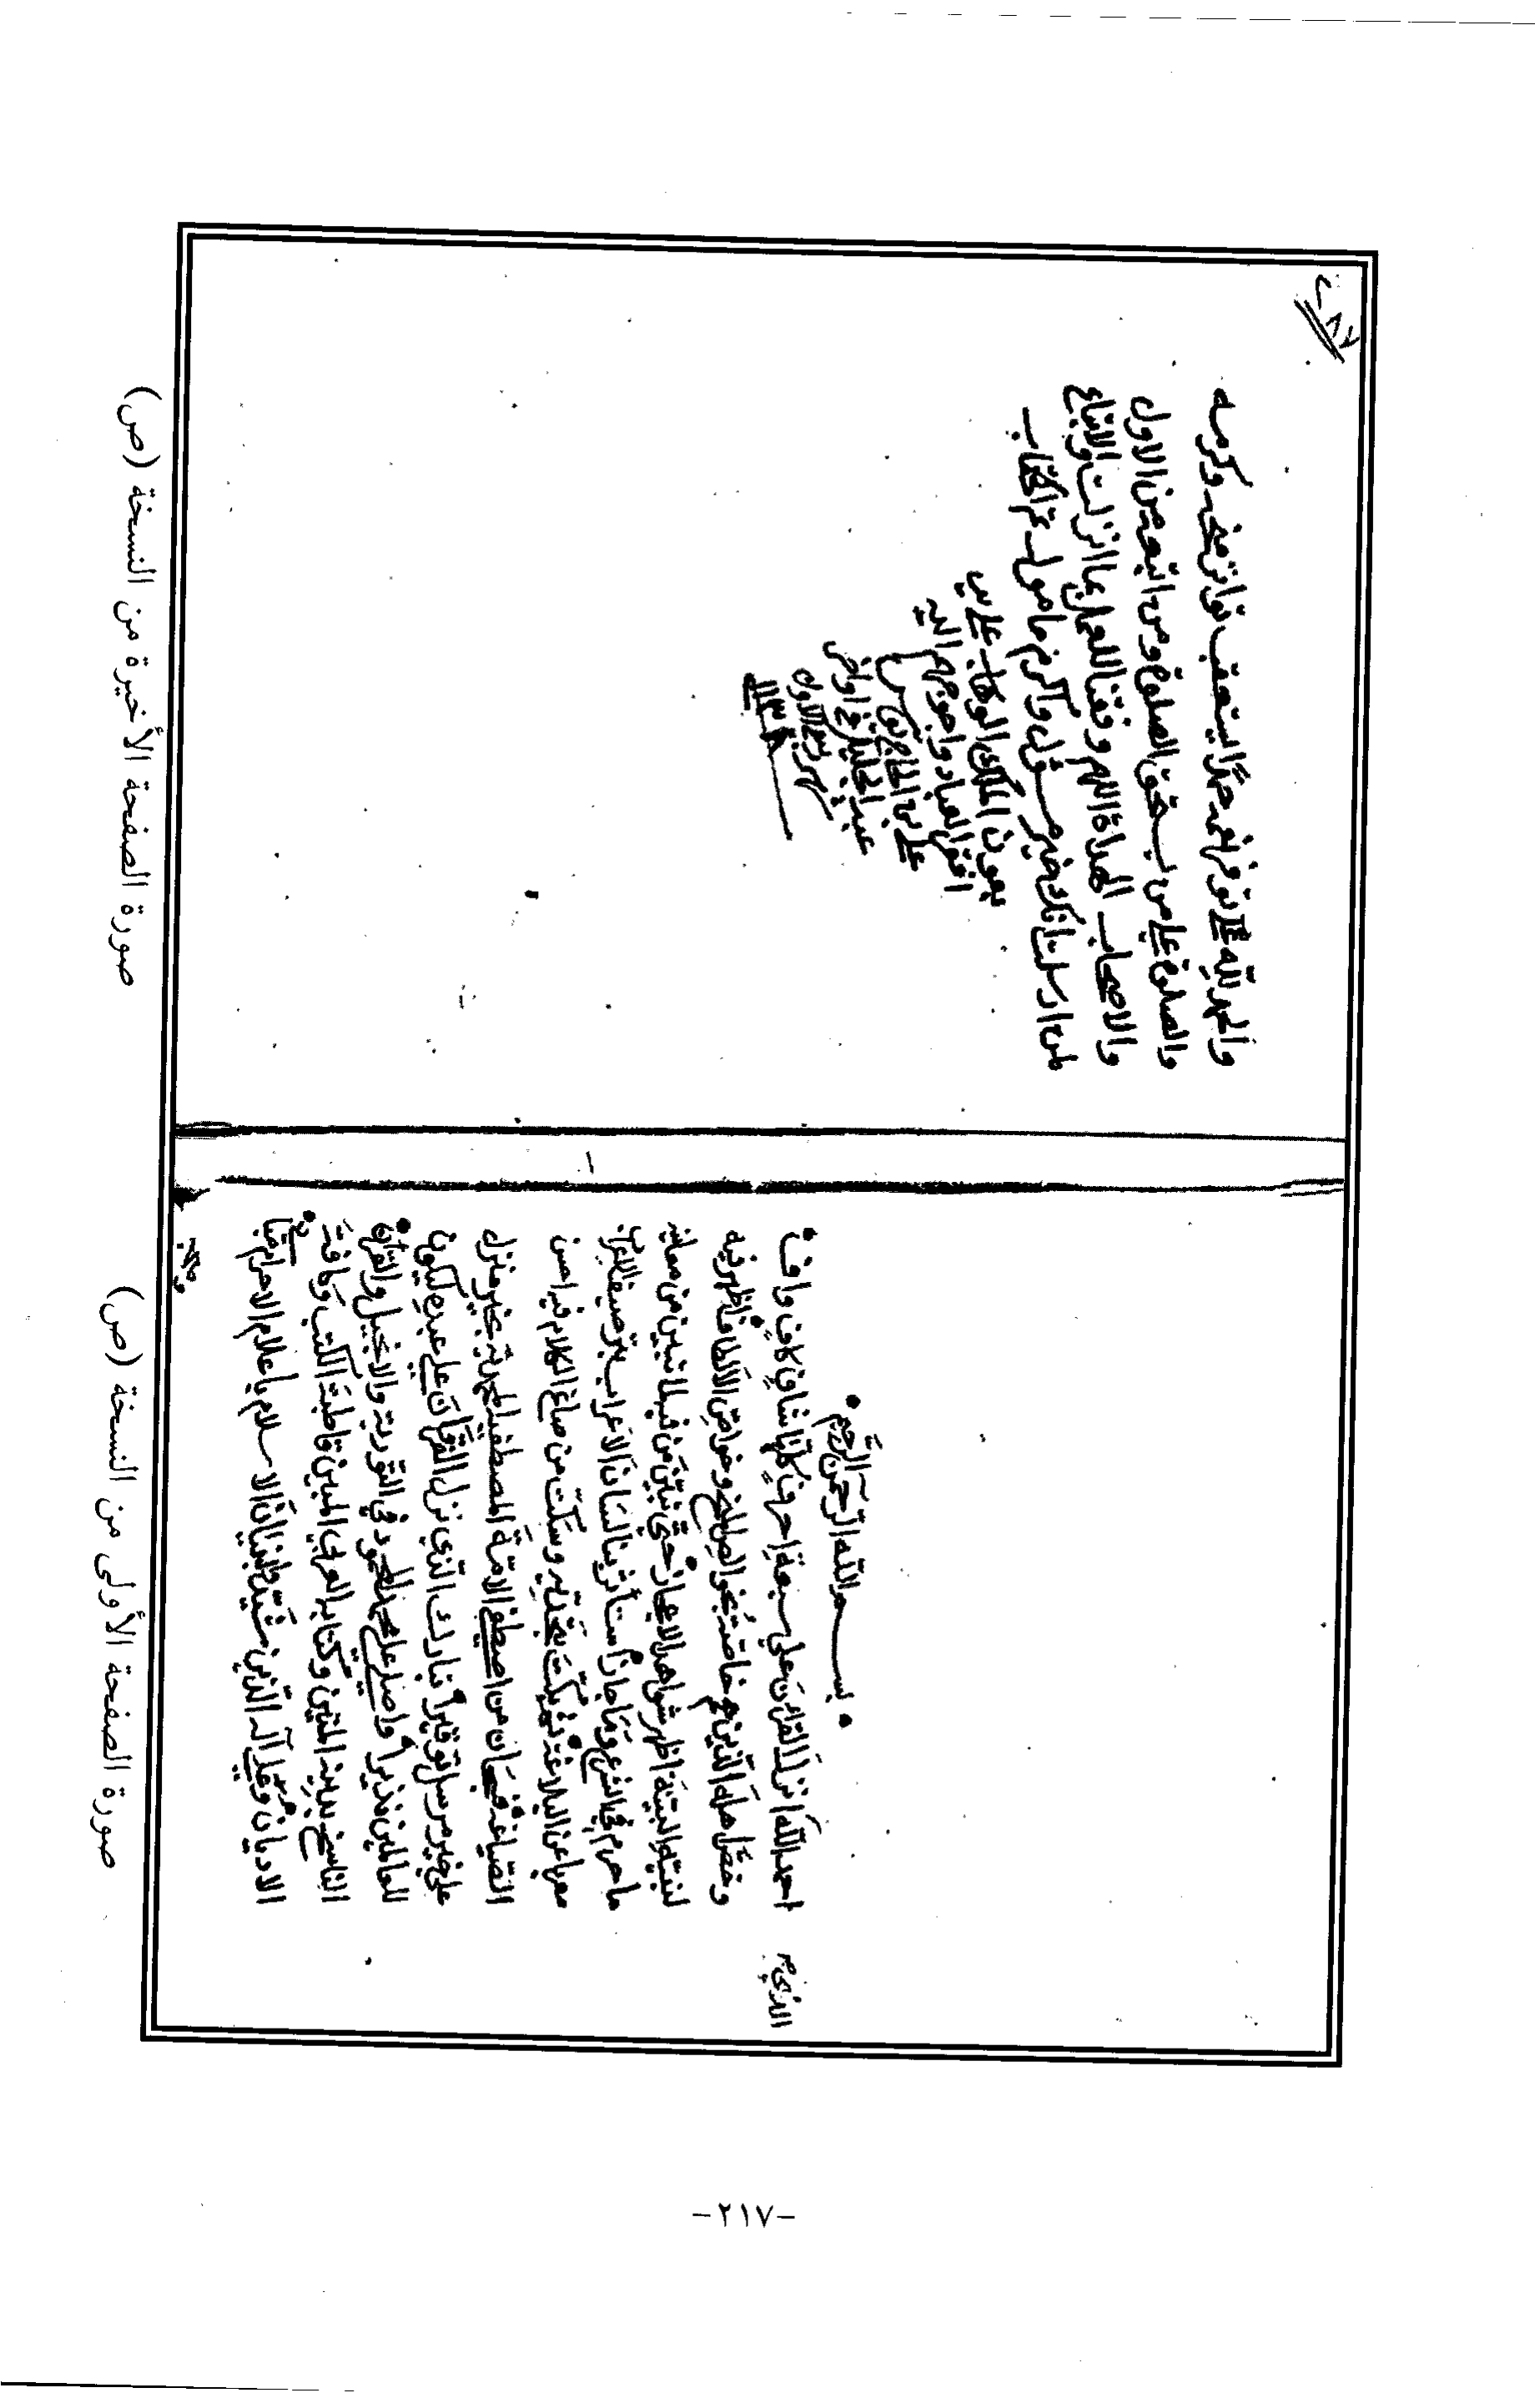 بسم الله الرحمن الرحيم
احمد الله انزل القرآن على سبعة احرف كلها شاف كاف واف
وخص حملة الذين هم خاصته بخواص المنح وخواص الألطاف فاظهر فيه
لنبيه البينة اظهر شواهد الاعجاز حتى تبين من قبلنا تبين من معانيه
ما حرم في الشرع وما جاز
معها عن البلاغة وسكت من صاغ الكلام فيه احسن
الصياغة فسبحان من اصطفى الامة المصطفية المحمدية بخير منزل
على خير مرسل توقيرا تبارك الذي نزل الفرقان على عبده ليكون
للعالمين نذيرا واصلي على محمد المحمود في التورية والانجيل والقرآن
الناسخ بدينه المتين وكتابه العربي المبين قاطبة الكتب وكافة
الاديان وعلى آله الذين بنيان الاسلام باعلام الاحرام
الذي
صورة الصفحة الأولى من النسخة (ص)
والحمد لله على توفر نعمه حمدا يستعقب تواتر منحه وكرمه
والصلوة على من يستحق الصلوة ومن اتبعه من الاول
والاصحاب الهداة اللهم وفقنا للعمل بما انزلت والاتباع
لمن ارسلت انك خير مسؤل واكرم مامول تم الكتاب
بعون الملك الوهاب على يد
افقر العباد واحوجهم اليه
علي بن الحاج
عبد الجليل في اواخر
شهر ربيع الاول
صورة الصفحة الأخيرة من النسخة (ص)
-٢١٧-